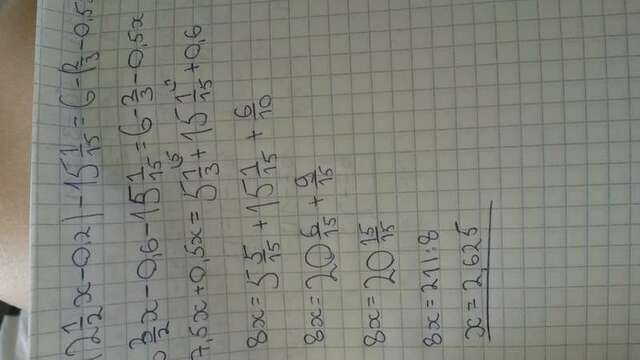 (2 1/2 x - 0,2) - 15 1/15 = 6 - (2/3 - 0,5
3/2 x - 0,6 - 15 1/15 = 6 - 2/3 - 0,5x
7,5x + 0,5x = 5 1/3 + 15 1/15 + 0,6
8x = 5 5/15 + 15 1/15 + 6/10
8x = 20 6/15 + 9/15
8x = 20 15/15
8x = 21 | : 8
x = 2,625